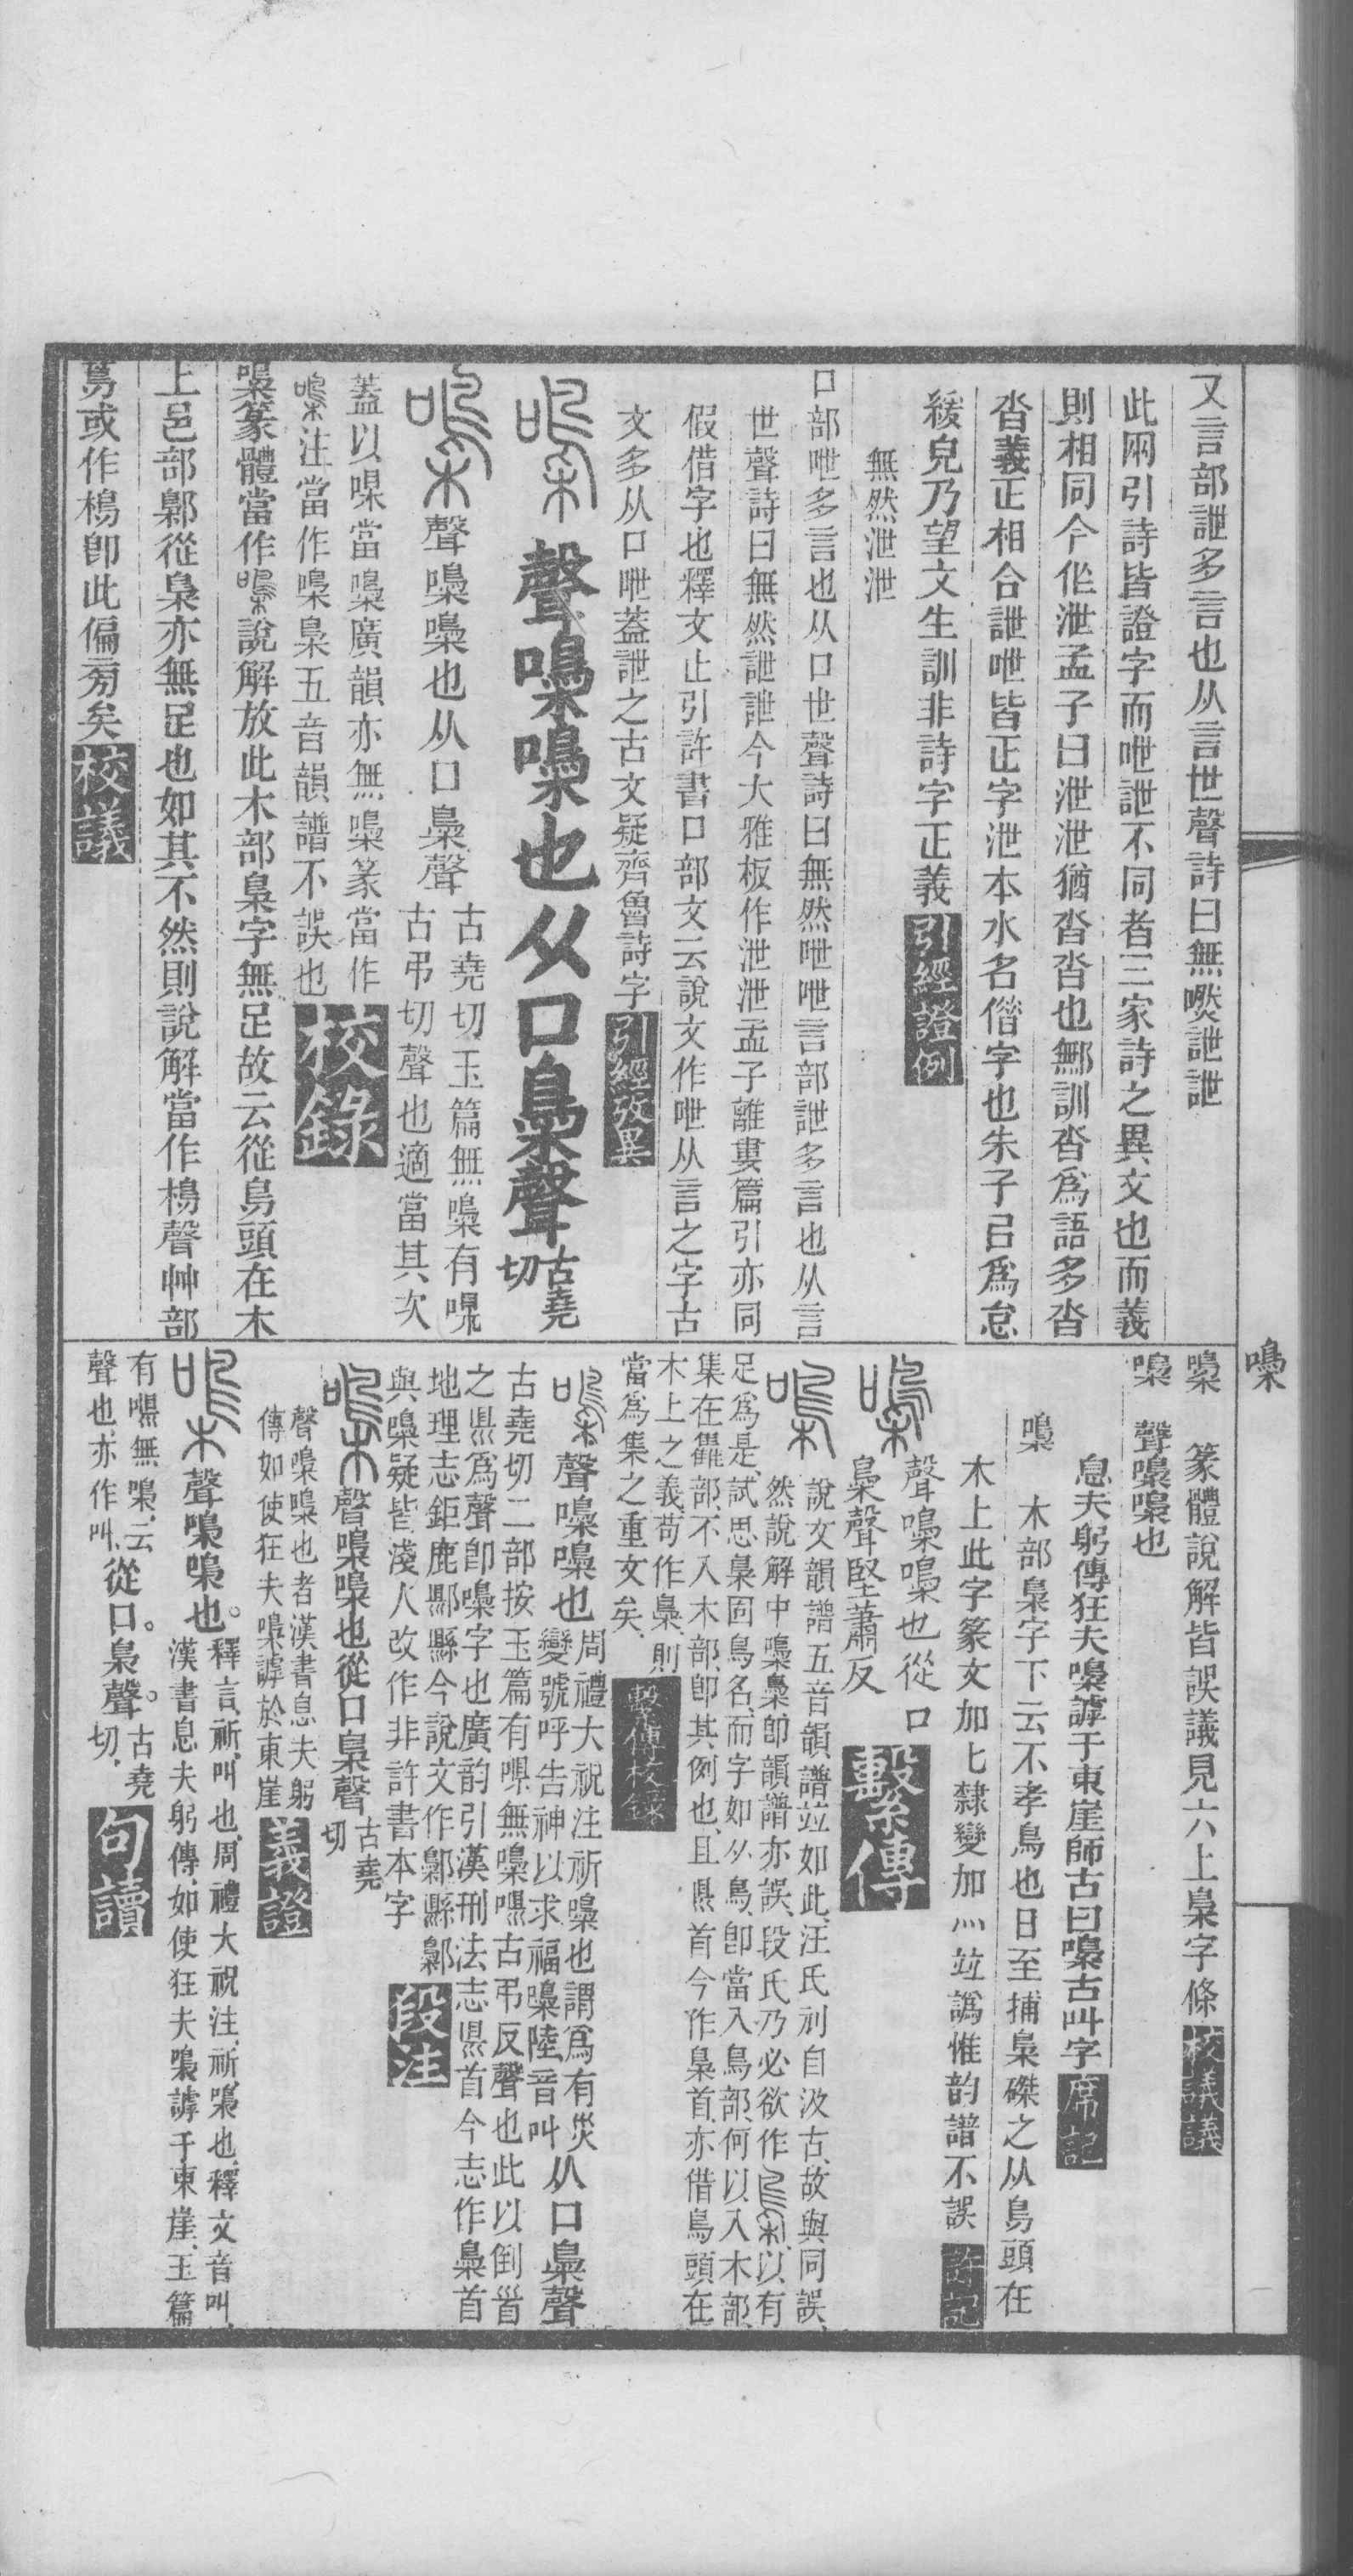 又言部詍多言也从言世聲詩曰無噗詍詍
此兩引詩皆證字而呭詍不同者三家詩之異文也而義
則相同今作泄孟子曰泄泄猶沓沓也鄦訓沓爲語多沓
沓義正相合詍呭皆正字泄本水名偕字也朱子㠯爲怠
緩皃乃望文生訓非詩字正義引經證例
無然泄泄
口部呭多言也从口世聲詩曰無然呭呭言部詍多言也从言
世聲詩曰無然詍詍今大雅板作泄泄孟子離婁篇引亦同
假借字也釋文止引許書口部文云說文作呭从言之字古
文多从口呭蓋詍之古文疑齊魯詩字引經攷異
聲嘄嘄也从口梟聲古堯切
聲嘄嘄也从口梟聲古堯切玉篇無嘄有㗕
古弔切聲也適當其次
蓋以㗕當嘄廣韻亦無嘄篆當作
注當作嘄梟五音韻譜不誤也校錄
嘄篆體當作說解放此木部梟字無足故云從鳥頭在木
上邑部鄡從梟亦無足也如其不然則說解當作樢聲艸部
蔦或作樢卽此偏旁矣校議
嘄
嘄 篆體說解皆誤議見六上梟字條校議議
嘄 聲嘄嘄也
息夫躬傳狂夫嘄謼于東崖師古曰嘄古叫字席記
嘄 木部梟字下云不孝鳥也日至捕梟磔之从鳥頭在
木上此字篆文加匕隸變加灬竝譌惟韵譜不誤許記
聲嘄嘄也從口
梟聲堅蕭反繫傳
說文韻譜五音韻譜竝如此汪氏刓自汲古故與同誤
然說解中嘄梟卽韻譜亦誤段氏乃必欲作以有
足爲是試思梟固鳥名而字如从鳥卽當入鳥部何以入木部
集在雥部不入木部卽其例也且㬎首今作梟首亦借鳥頭在
木上之義苟作梟則
當爲集之重文矣繫傳校錄
聲嘄嘄也周禮大祝注祈嘄也謂爲有災
變號呼告神以求福嘄陸音叫从口梟聲
古堯切二部按玉篇有㗕無嘄㗕古弔反聲也此以倒首
之㬎爲聲卽嘄字也廣韵引漢刑法志㬎首今志作梟首
地理志鉅鹿鄡縣今說文作鄡縣鄡
與嘄疑皆淺人改作非許書本字段注
聲嘄嘄也從口梟聲古堯切
聲嘄嘄也者漢書息夫躬
傳如使狂夫嘄謼於東崖義證
聲嘄嘄也。釋言祈叫也周禮大祝注祈嘄也釋文音叫
漢書息夫躬傳如使狂夫嘄謼于東崖玉篇
有㗕無嘄云
聲也亦作叫從口。梟聲。古堯切句讀